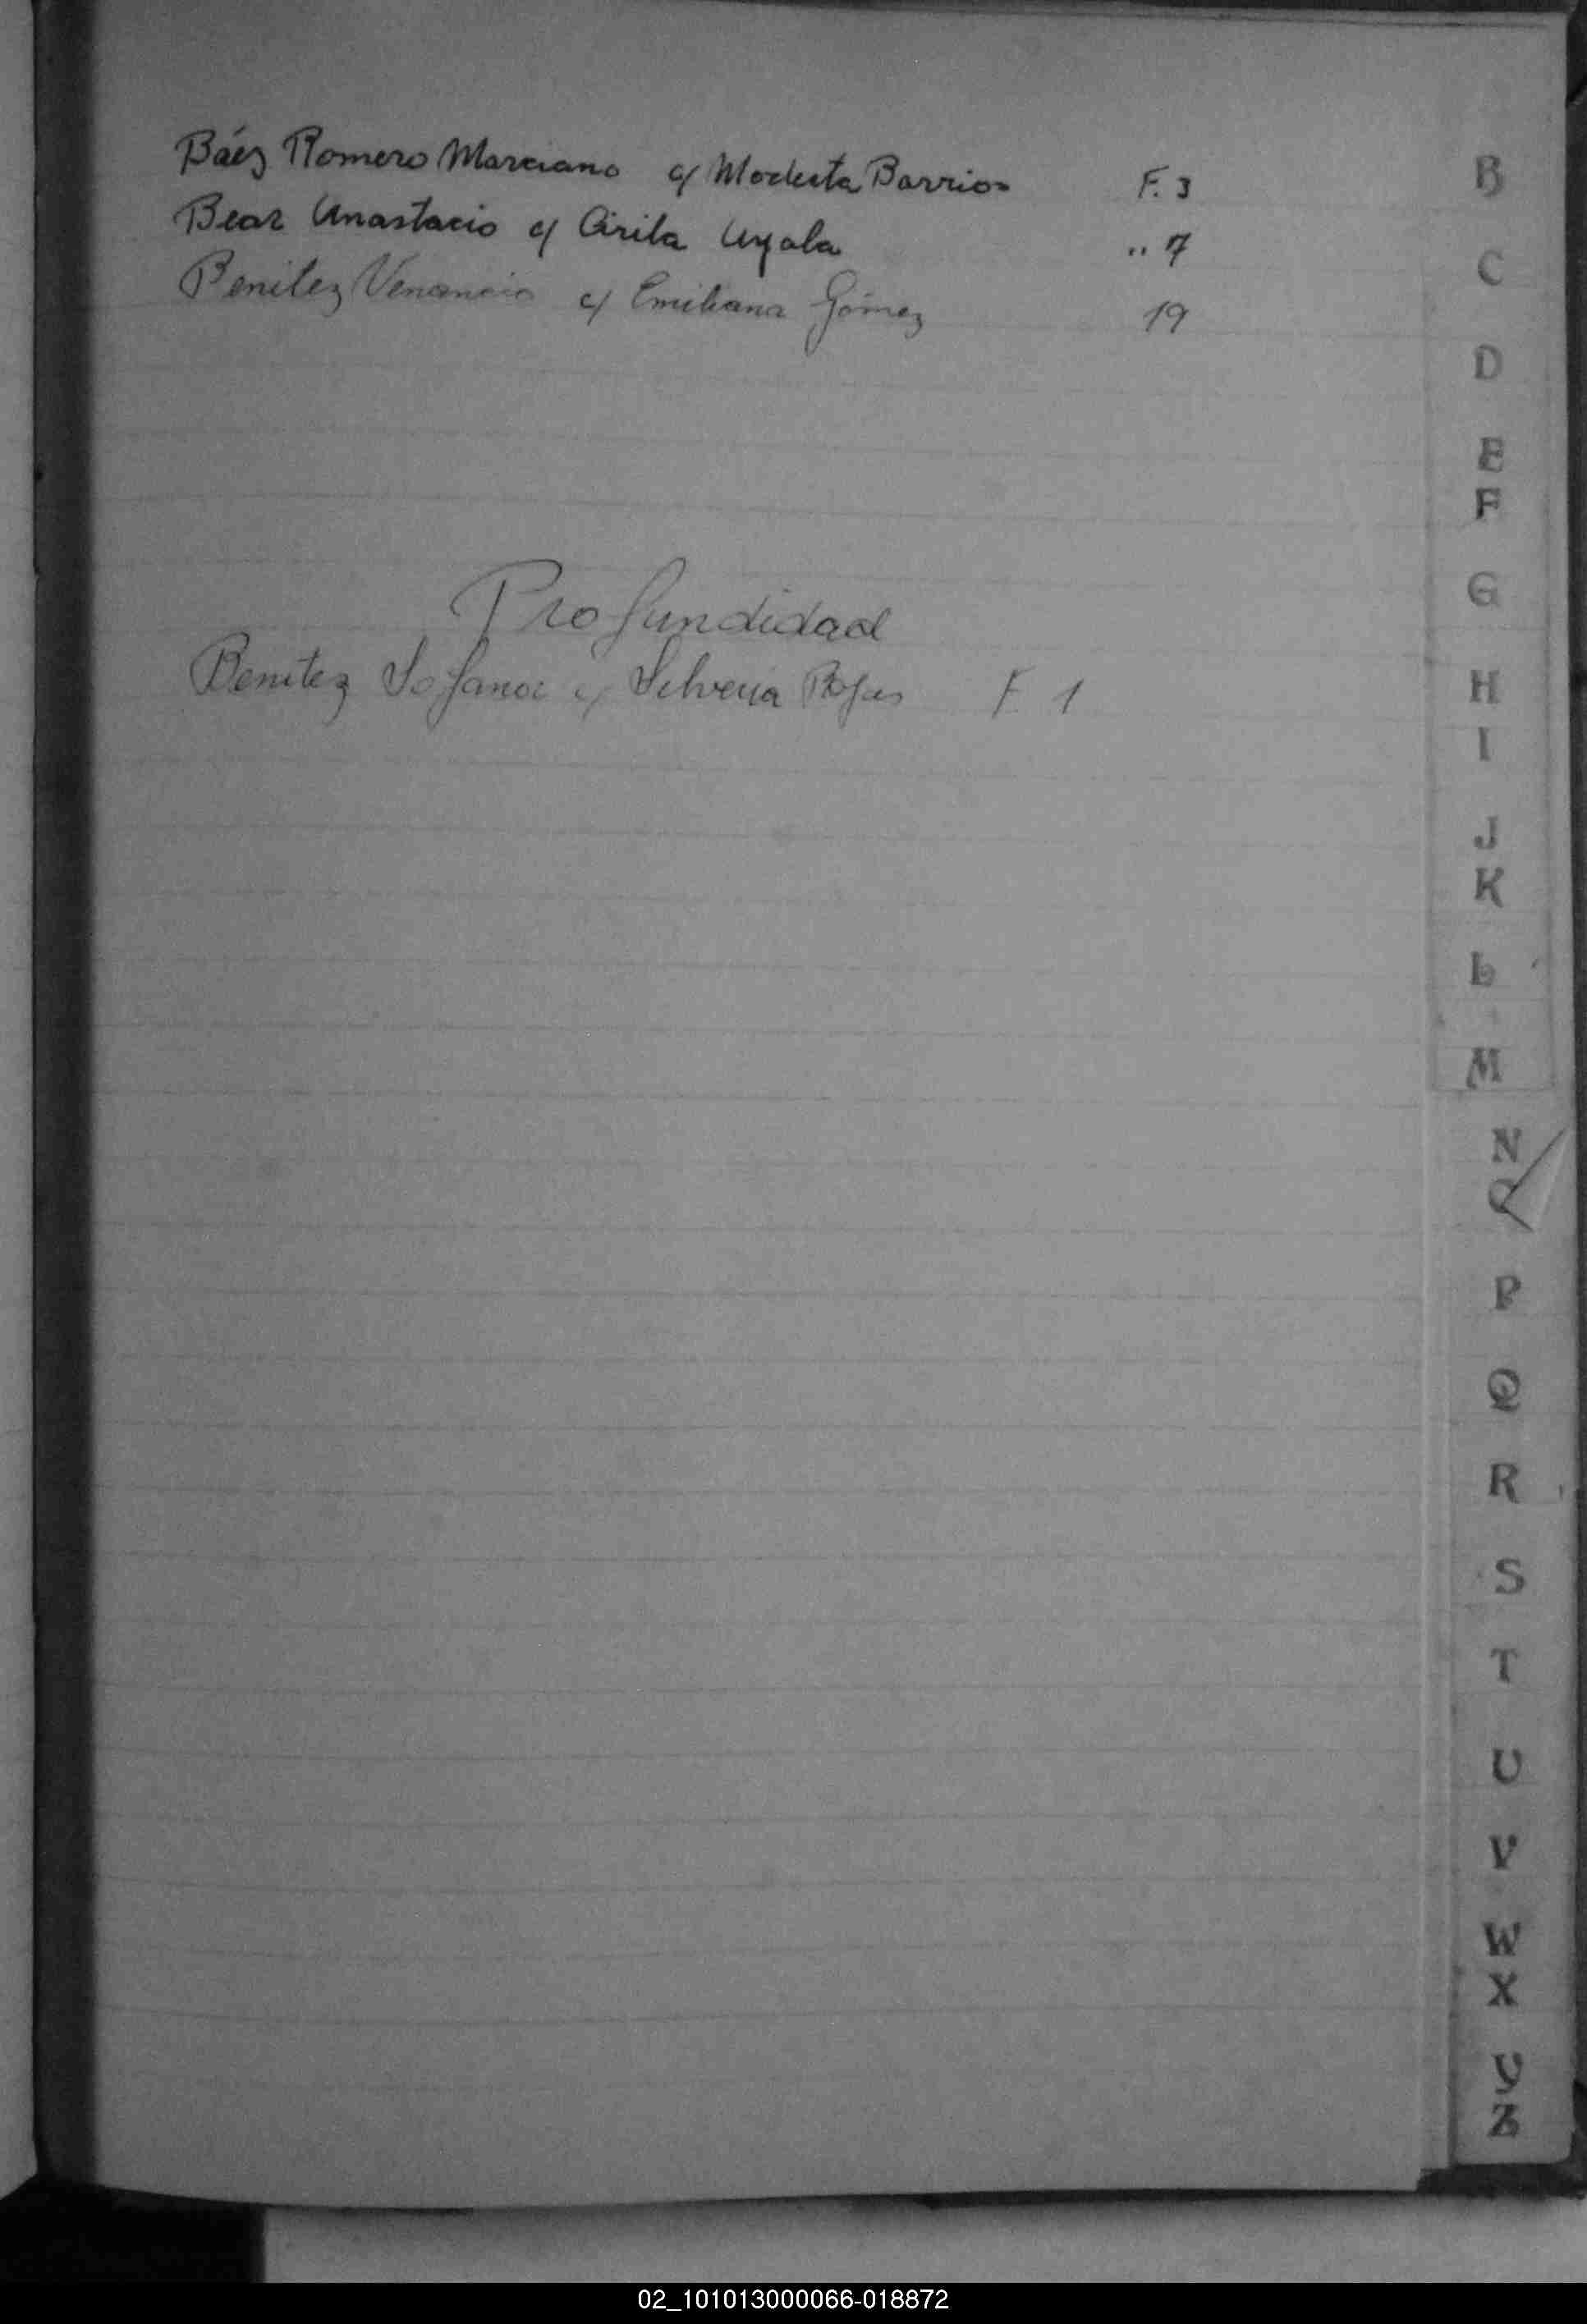 Báez Romero Marciano c/ Modesta Barrios F. 3
Bear Anastacio c/ Cirila Ayala " 7
Benitez Venancio c/ Emiliana Gómez 19
Profundidad
Benitez c/ Silveria Rojas F 1
B
C
D
E
F
G
H
I
J
K
L
M
N
O
P
Q
R
S
T
U
V
W
X
Y
Z
02_101013000066-018872